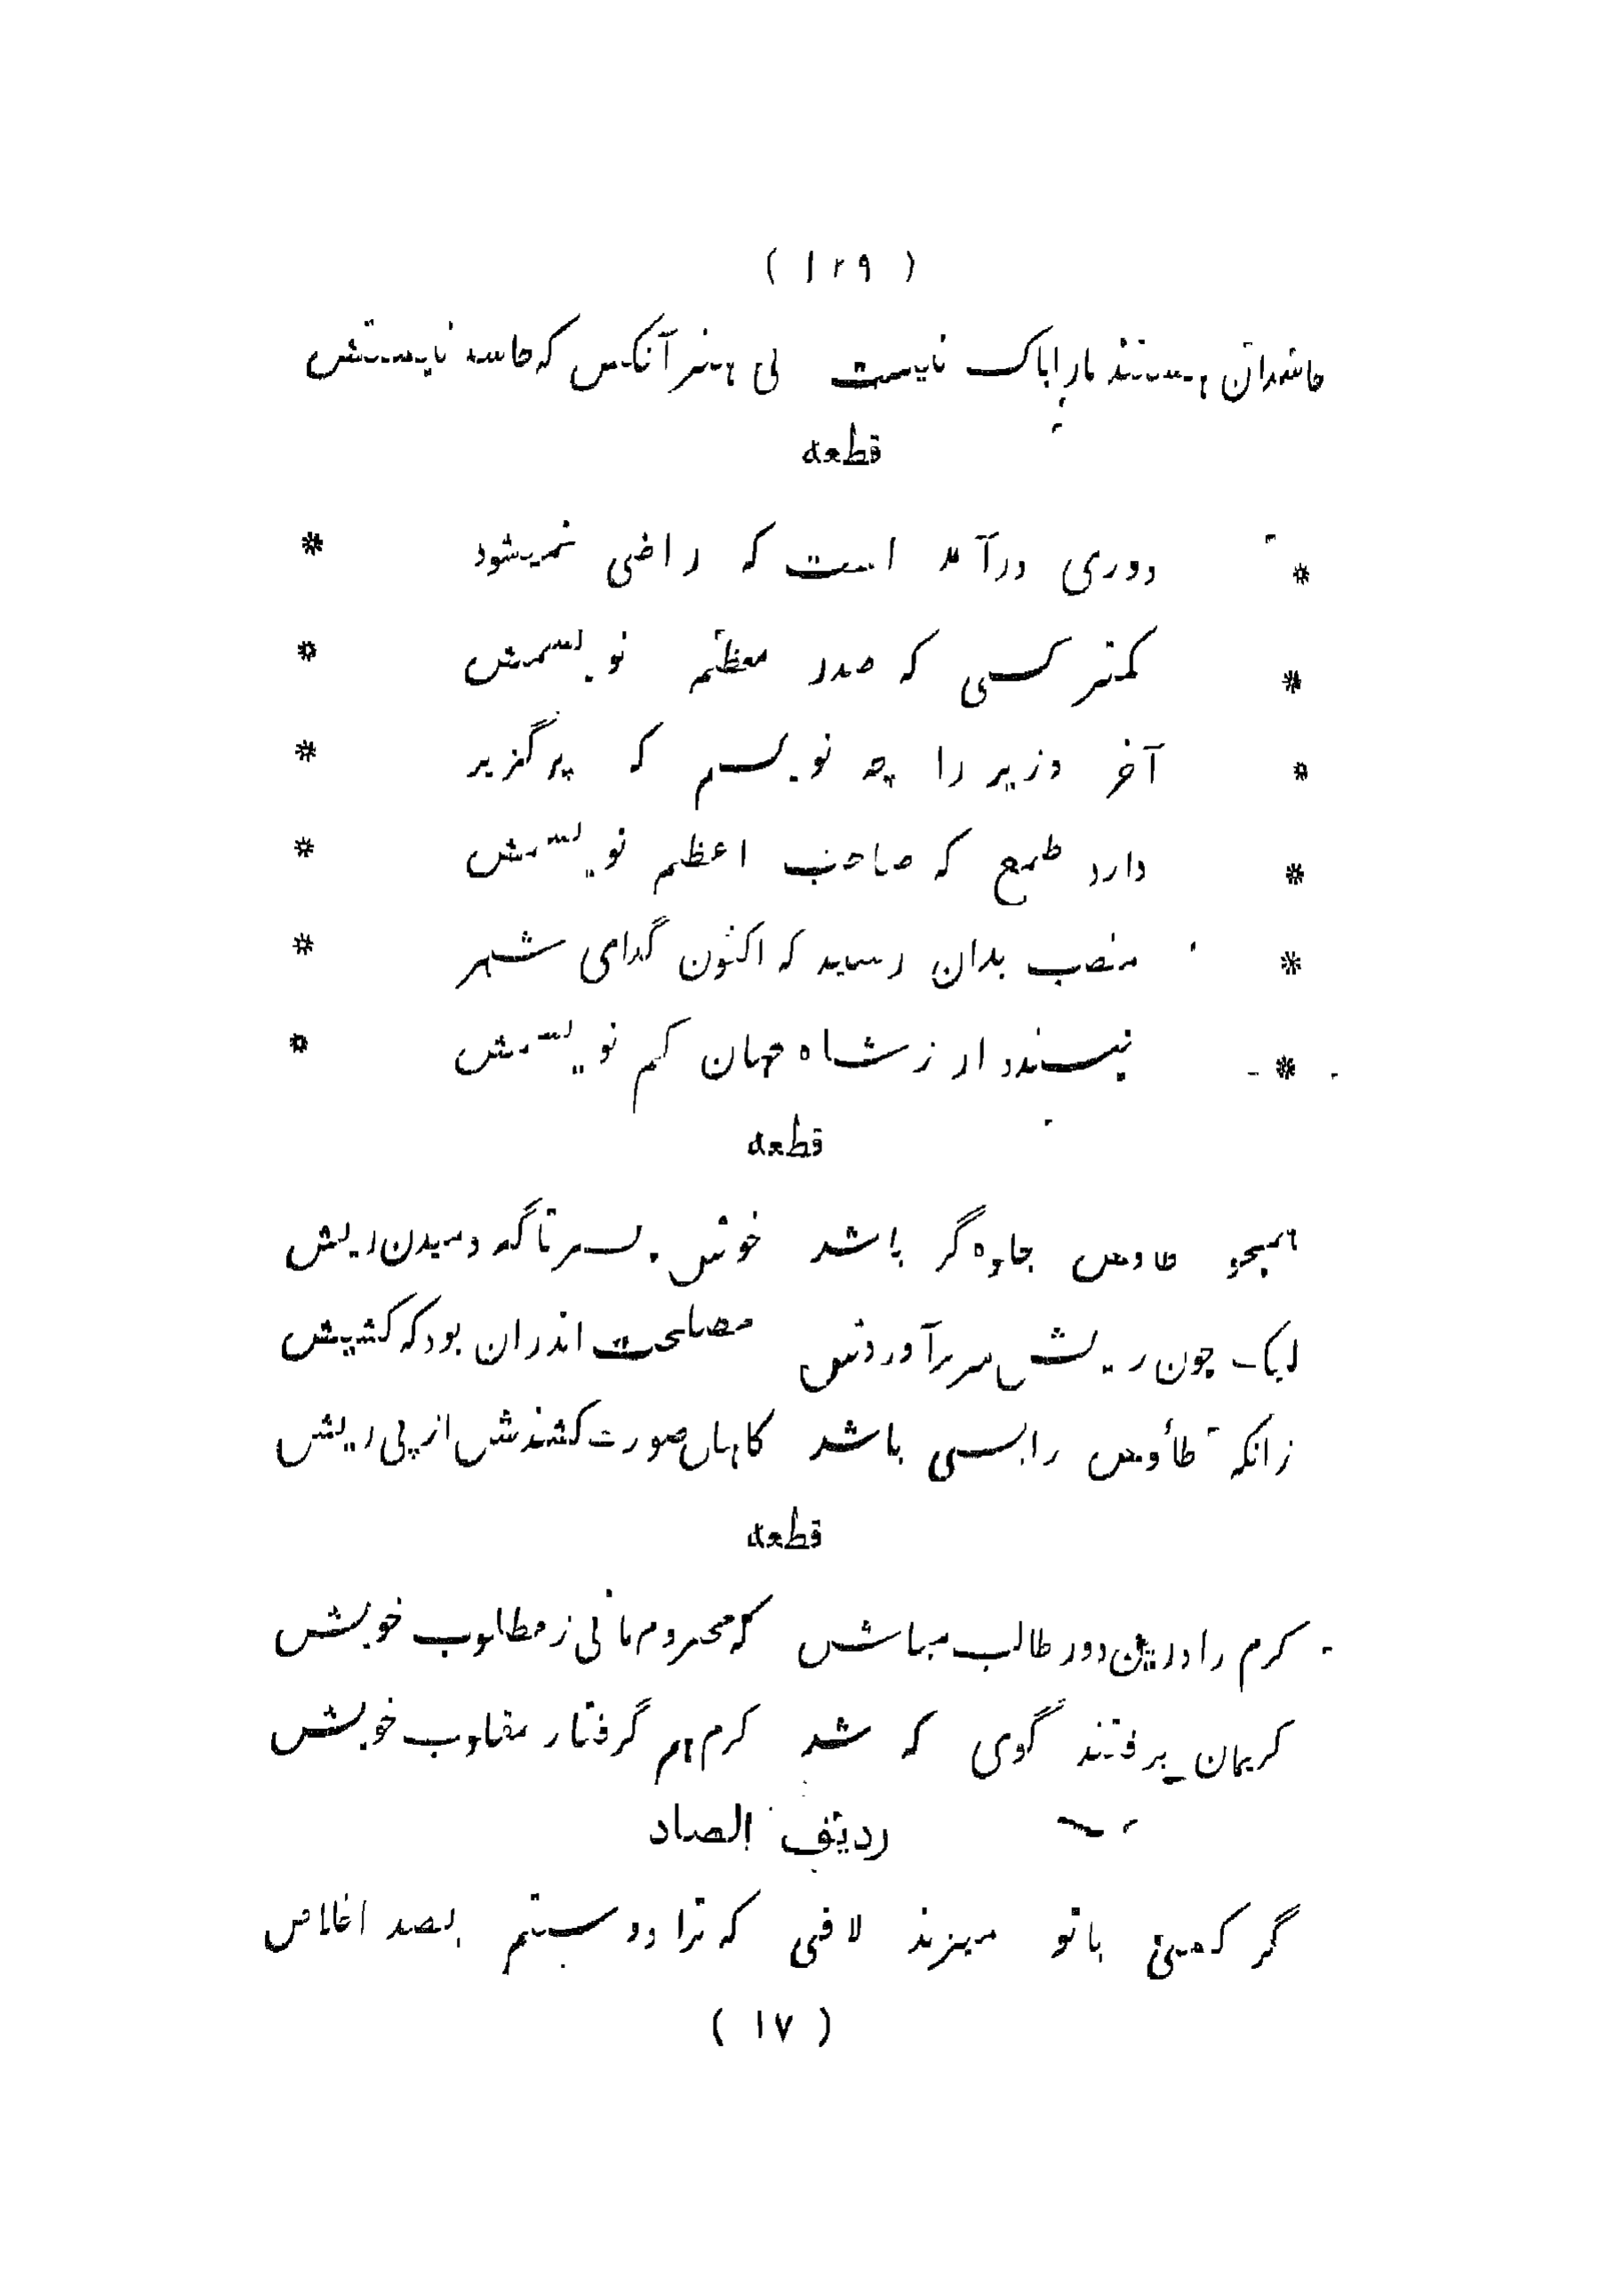 ( ۱۲۹ )
حاسدان هستند ما را باک نیست بی هنر آنکس که حاسد نیستش
قطعه
* دوری درآمد است که راضی نمیشود *
* کمتر کسی که صدر معظم نویسمش *
* آخر وزیر را چه نویسم که پرگزیر *
* دارد طمع که صاحب اعظم نویسمش *
* منصب بدان رسید که اکنون گدای شهر *
* نپسندد ار ز شاه جهان کم نویسمش *
قطعه
همچو طاوس جلوه گر باشد خوش پسر تا گه دمیدن ریش
لیک چون ریش سر برآوردش مصلحت اندران بود که کشیش
زانکه طاؤس را بسی باشد کابلهان صورت کشندش از پی ریش
قطعه
کرم را درین دور طالب مباش که محروم مانی ز مطلوب خویش
کریمان برفتند گوی که شد کرم هم گرفتار مقلوب خویش
ردیف الصاد
گر کسی با تو میزند لافی که ترا دوستم بصد اخلاص
( ۱۷ )